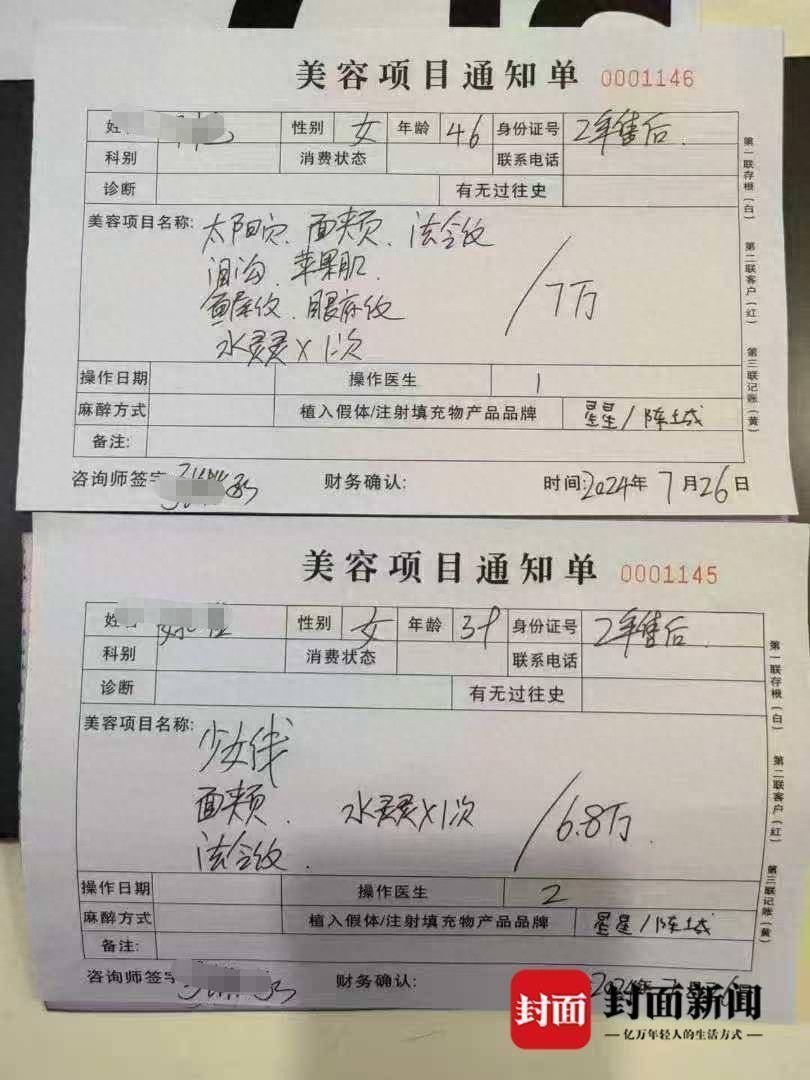 美容项目通知单 0001146
性别 女 年龄 46 身份证号 2年售后
科别 消费状态 联系电话
诊断 有无过往史
美容项目名称: 太阳穴、面颊、法令纹
泪沟、苹果肌
鱼尾纹、眼底纹
/7万
水灵灵×1次
操作日期 操作医生 1
麻醉方式 植入假体/注射填充物产品品牌 星星/陈城
备注:
咨询师签字 财务确认: 时间:2024年7月26日
第一联存根(白) 第二联客户(红) 第三联记账(黄)
美容项目通知单 0001145
性别 女 年龄 身份证号 2年售后
科别 消费状态 联系电话
诊断 有无过往史
美容项目名称:
少女线
面颊 水灵灵×1次 /6.8万
法令纹
操作日期 操作医生 2
麻醉方式 植入假体/注射填充物产品品牌 星星/陈城
备注:
咨询师签字 财务确认: 2024年
第一联存根(白) 第二联客户(红) 第三联记账(黄)
封面 封面新闻
亿万年轻人的生活方式